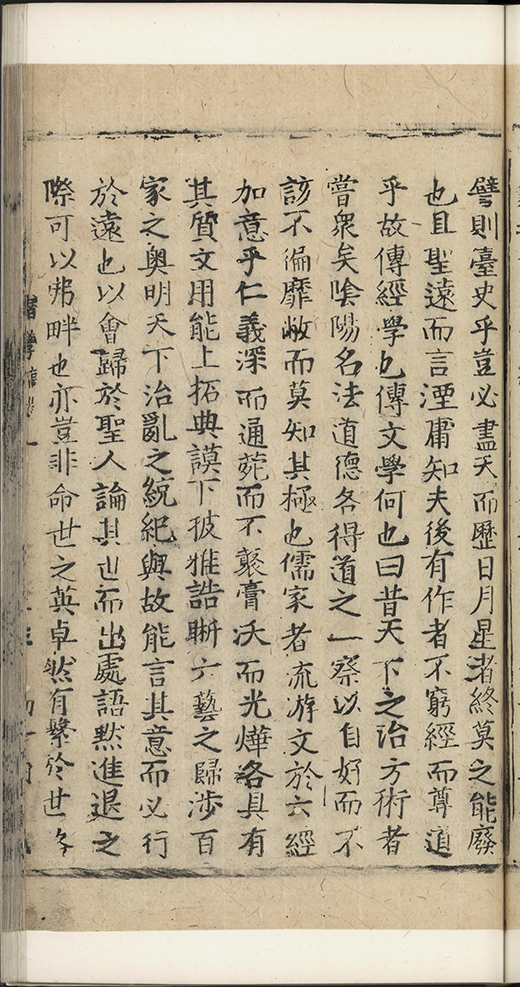 譬則臺史乎豈必盡天而歷日月星者終莫之能廢
也且聖遠而言湮庸知夫後有作者不窮經而尊道
乎故傳經學也傳文學何也曰昔天下之治方術者
嘗衆矣陰陽名法道德各得道之一察以自好而不
該不徧靡敝而莫知其極也儒家者流游文於六經
加意乎仁義深而通菀而不褻膏沃而光燁各具有
其質文用能上拓典謨下披雅誥聠六藝之歸涉百
家之奧明天下治亂之統紀與故能言其意而必行
於遠也以會歸於聖人論其世而出處語黙進退之
際可以弗畔也亦豈非命世之英卓然有繫於世乎